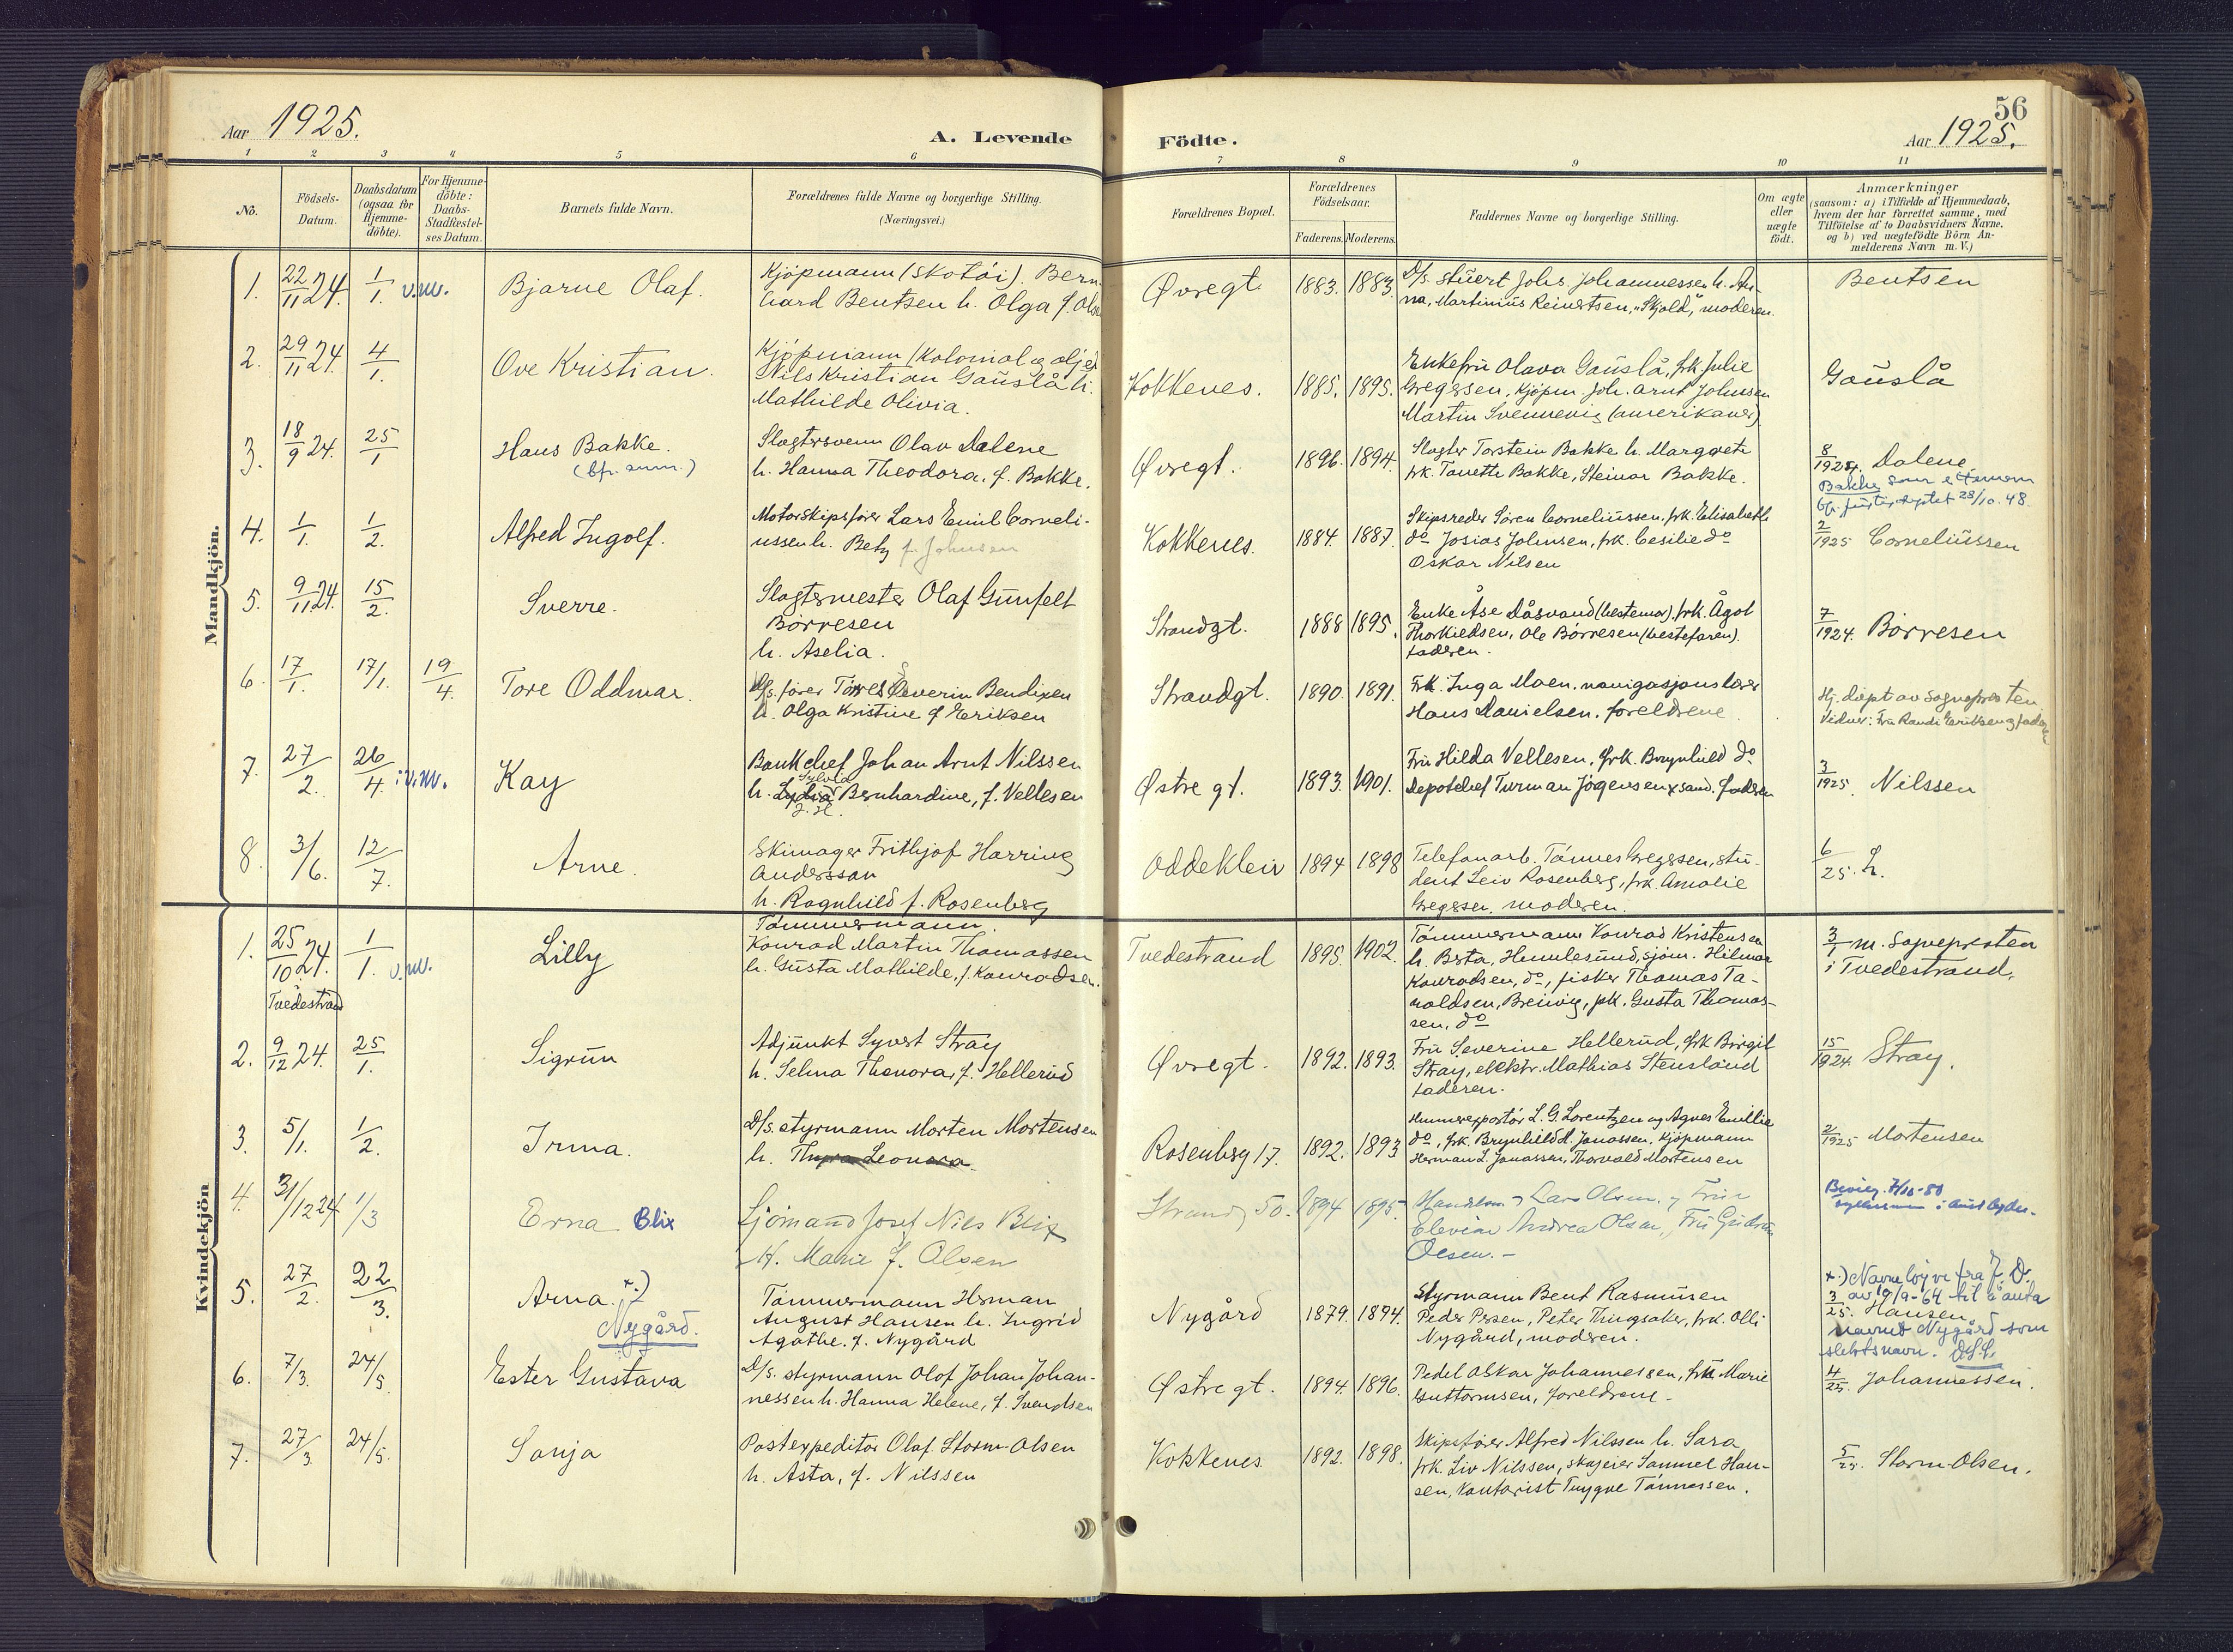 56
Aar 1925.
A. Levende
Födte.
Aar 1925.
1 2 3 4 5 6 7 8 9 10 11
No.
Födsels-
Datum.
Daabsdatum
(ogsaa for
Hjemme-
döbte).
For Hjemme-
döbte:
Daabs-
Stadfæstel-
ses Datum.
Barnets fulde Navn.
Forældrenes fulde Navne og borgerlige Stilling.
(Næringsvei.)
Forældrenes Bopæl.
Forældrenes
Födselsaar.
Faderens. Moderens.
Faddernes Navne og borgerlige Stilling.
Om ægte
eller
uægte
födt.
Anmærkninger
(saasom: a) i Tilfælde af Hjemmedaab,
hvem der har forrettet samme, med
Tilföielse af to Daabsvidners Navne.
og b) ved uægtefödte Börn An-
melderens Navn m. V.)
Mandkjön.
1. 22/11 24. 1/1. v.nv. Bjarne Olaf.
Kjöpmann (skotöi). Bern-
hard Bentsen h. Olga f. Olsen
Øvregt. 1883. 1883.
D/s. stuert Johs Johannessen h. An-
na, Martinius Reinertsen, "Skjold", moderen.
Bentsen
2. 29/11 24. 4/1. Ove Kristian.
Kjöpmann (kolonial og olje)
Nils Kristian Gauslå h.
Mathilde Olivia.
Kokkenes. 1885. 1895.
Enkefru Olava Gauslå, frk. Julie
Gregersen, Kjöpm. Joh. Arnt Johnsen
Martin Svennevig (amerikaner)
Gauslå
3. 18/9 24. 25/1 Hans Bakke.
(bfr. anm.)
Slagtersvenn Olav Dalene
h. Hanna Theodora, f. Bakke.
Øvregt. 1896. 1894.
Slagter Torstein Bakke h. Margrete
frk. Tanette Bakke, Steinar Bakke.
8/1924. Dalene
Bakke som etternavn
28/10.48
4. 1/1. 1/2. Alfred Ingolf.
Motorskipsförer Lars Emil Corneli-
ussen h. Betzy f. Johnsen
Kokkenes. 1884. 1887.
Skipsreder Sören Corneliussen, frk. Elisabeth
do Josias Johnsen, frk. Cesilie do
Oskar Nilsen
2/1925 Corneliussen
5. 9/11 24. 15/2. Sverre.
Slagtermester Olaf Gunfelt
Börresen
h. Aselia.
Strandgt. 1888 1895.
Enke Åse Dåsvand (bestemor), frk. Ågot
Thorkildsen, Ole Börresen (bestefaren)
faderen.
7/1924. Börresen
6. 17/1. 17/1. 19/4. Tore Oddmar.
D/s. förer Törres Severin Bendixen
h. Olga Kristine f Eriksen
Strandgt. 1890. 1891.
Frk. Inga Moen, navigasjonslærer
Hans Danielsen, foreldrene.
Hj. döpt av sognepresten
Vidner: Fru Randi Eriksen og faderen
7. 27/2. 26/4. v.nv. Kay
Bankchef Johan Arnt Nilssen
Sylvia
h. Lydia Bernhardine, f. Vellesen
Østregt. 1893. 1901.
Fru Hilda Vellesen, frk. Brynhild do
Depotchef Turman Jörgensen, faderen
3/1925. Nilssen
8. 3/6. 12/7. Arne.
Skimager Frithjof Harring
Anderssan
h. Ragnhild f. Rosenberg
Oddekleiv 1894 1898
Telefonarb. Tönnes Gregersen, stu-
dent Leiv Rosenberg, frk. Amalie
Gregersen, moderen.
6/25. h.
Kvindekjön
1. 25/10 24. 1/1. v.nv. Lilly
Tvedestrand
Tömmermann.
Konrad Martin Thomassen
h. Gusta Mathilde, f. Konradsen.
Tvedestrand 1895. 1902.
Tömmermann Konrad Kristensen
h. Berta, Humlesund, sjöm. Hilmar
Konradsen, do, fisker Thomas Ta-
raldsen, Breivig, frk. Gusta Thomas-
sen, do
3/1 m. Sognepresten
i Tvedestrand.
2. 9/12 24. 25/1. Sigrun
Adjunkt Syvert Stray
h. Selma Thenora, f. Hellerud
Øvregt. 1892. 1893.
Fru Severine Hellerud, frk Birgit
Stray, elektr. Mathias Stensland
faderen.
15/1924. Stray.
3. 5/1. 1/2. Irma.
D/s. styrmann Morten Mortensen
h. Thyra Leonora.
Rosenberg 17. 1892. 1893
Hummerexportör L. G. Lorentzen og Agnes Emilie
do, frk. Brynhild A. Jonassen, kjöpmann
Herman L. Jonassen, Thorvald Mortensen
2/1925 Mortensen
4. 31/12 24 1/3 Erna Blix
Sjömand Josef Nils Blix
H. Marie f. Olsen
Strandg 50. 1894 1895.
Lars Olsen, og Fru
Andrea Olsen, Fru Gudrun
Olsen. -
Bevilg. 7/10-80
i Aust Agder.
5. 27/2. 22/3. Arna x.)
Nygård.
Tömmermann Herman
August Hansen h. Ingrid
Agathe. f. Nygård
Nygård 1879. 1894.
Styrmann Bent Rasmusen
Peder Persen, Peter Thingsaker, frk. Olli
Nygård, moderen.
x.) Navneløyve fra J. D.
av 10/9-64 til å anta
3/25. Hansen.
navnet Nygård som
slektsnavn.
6. 7/3. 24/5 Ester Gustava
D/s. styrmann Olof Johan Johan-
nessen h. Hanna Helene, f. Svendsen
Østregt. 1894. 1896.
Pedel Oskar Johannessen, frk Marie
Guttormsen, foreldrene.
4/25. Johannessen.
7. 27/3 24/5. Sonja
Postexpeditör Olaf Storm-Olsen
h. Asta, f. Nilssen
Kokkenes 1892. 1898.
Skipsförer Alfred Nilssen h. Sara
frk. Liv Nilssen, skogeier Samuel Han-
sen, kontorist Trygve Tönnessen.
5/25. Storm-Olsen.